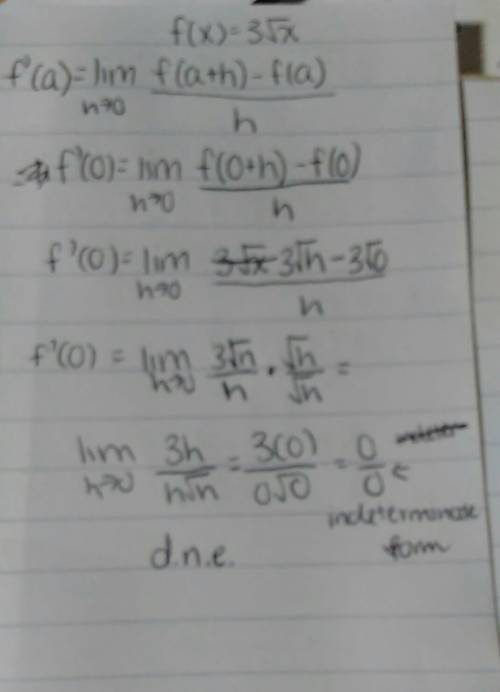 f(x) = 3√x
f'(a) = lim h→0 f(a+h) - f(a) / h
⇒ f'(0) = lim h→0 f(0+h) - f(0) / h
f'(0) = lim h→0 3√x 3√h - 3√0 / h
f'(0) = lim h→0 3√h / h · √h / √h =
lim h→0 3h / h√h = 3(0) / 0√0 = 0 / 0 ←
indeterminate
form
d.n.e.